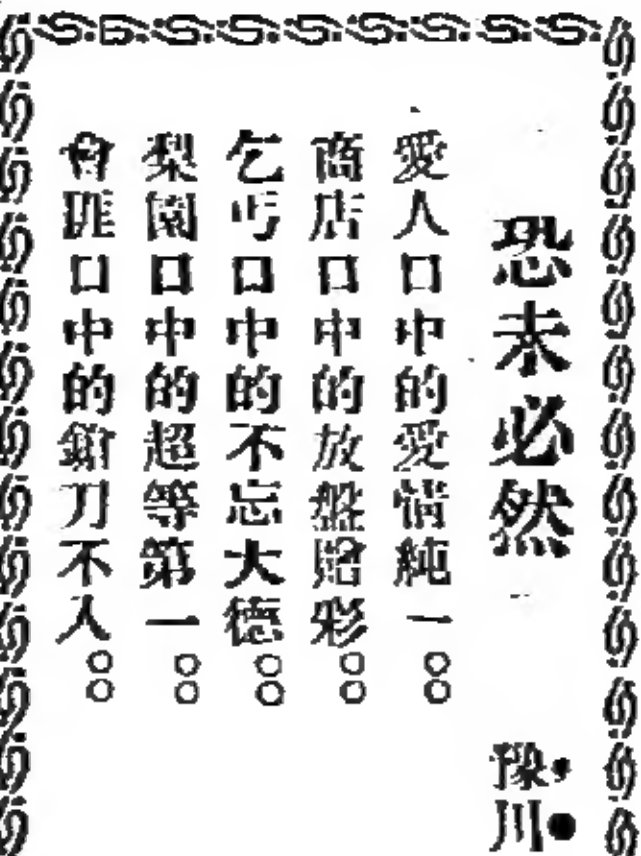 恐未必然
豫川
愛人口中的愛情純一○○
商店口中的放盤賠彩○○
乞丐口中的不忘大德○○
梨園口中的超等第一○○
會匪口中的鎗刀不入○○